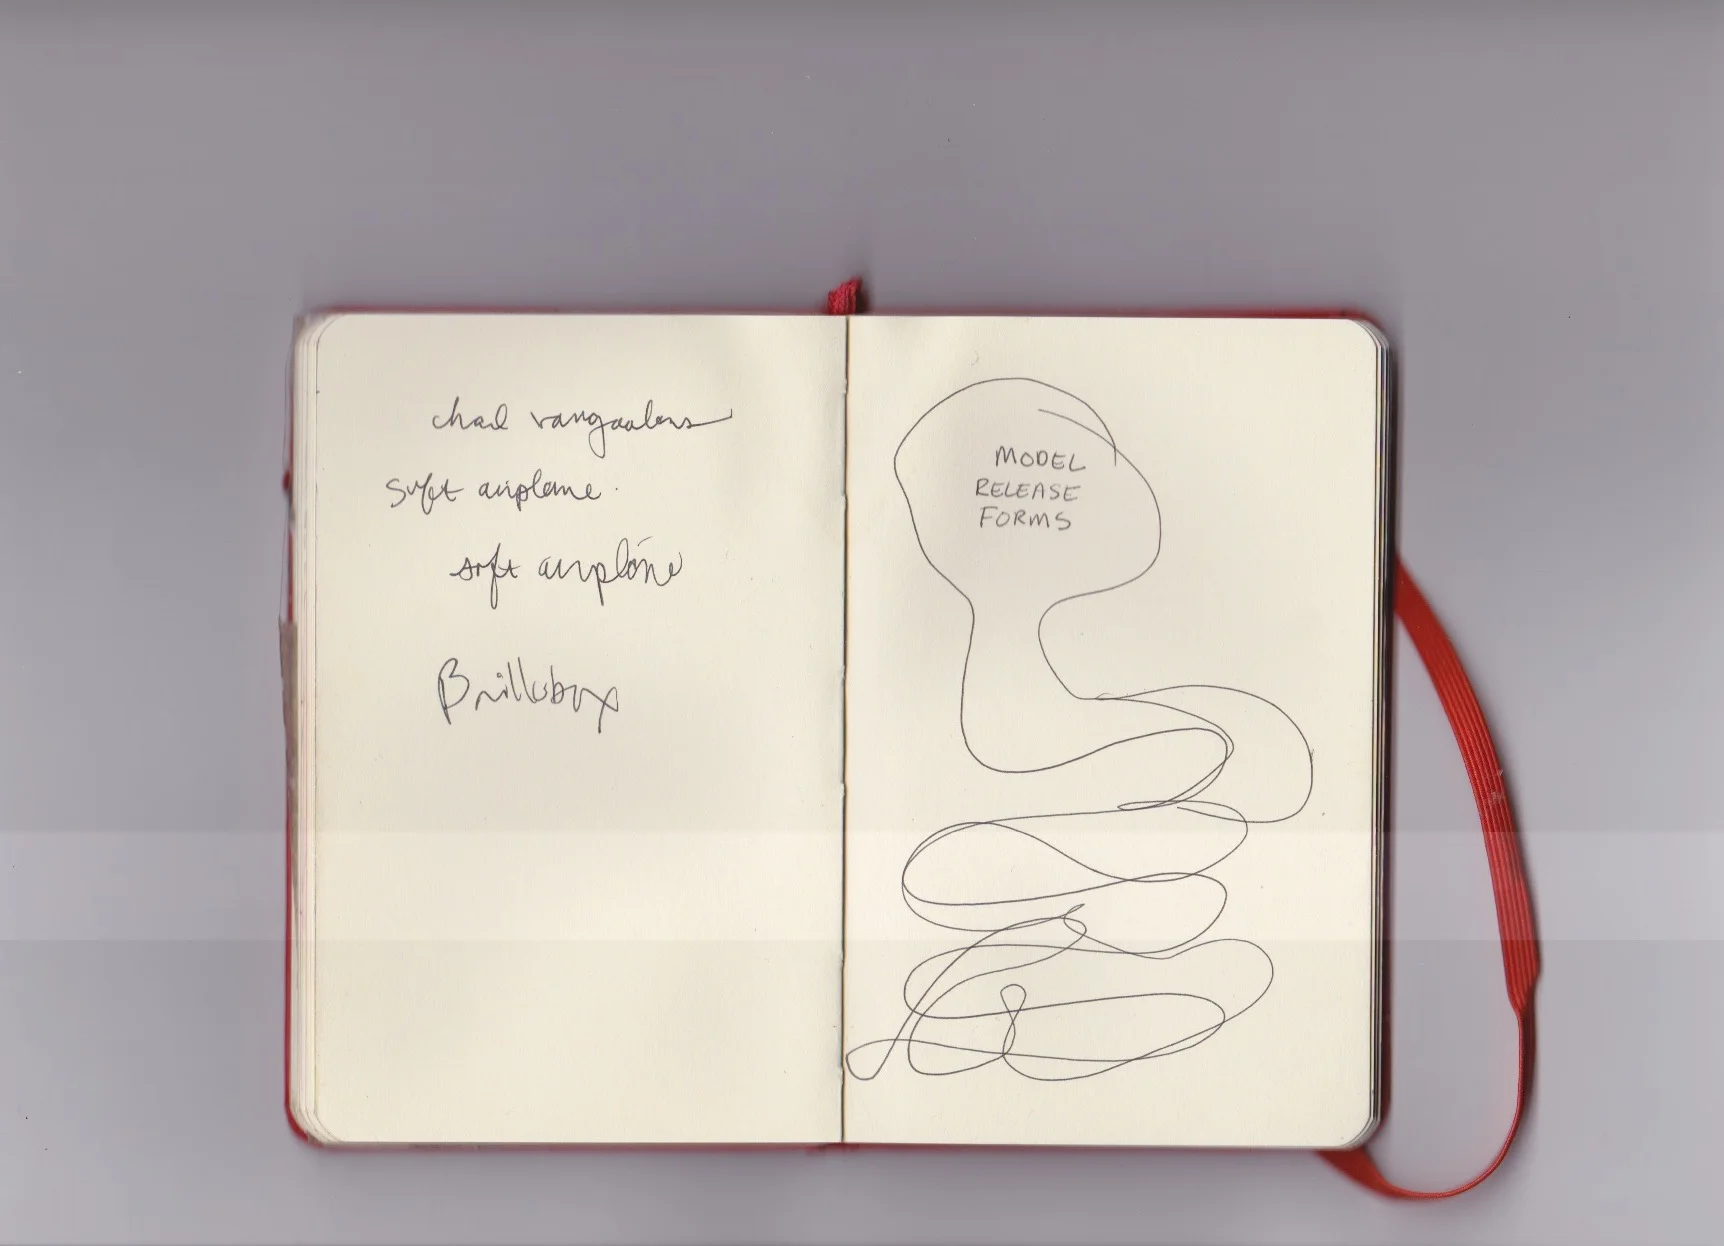 chad vangaalens
soft airplane.
soft airplane
Brillobox
MODEL
RELEASE
FORMS